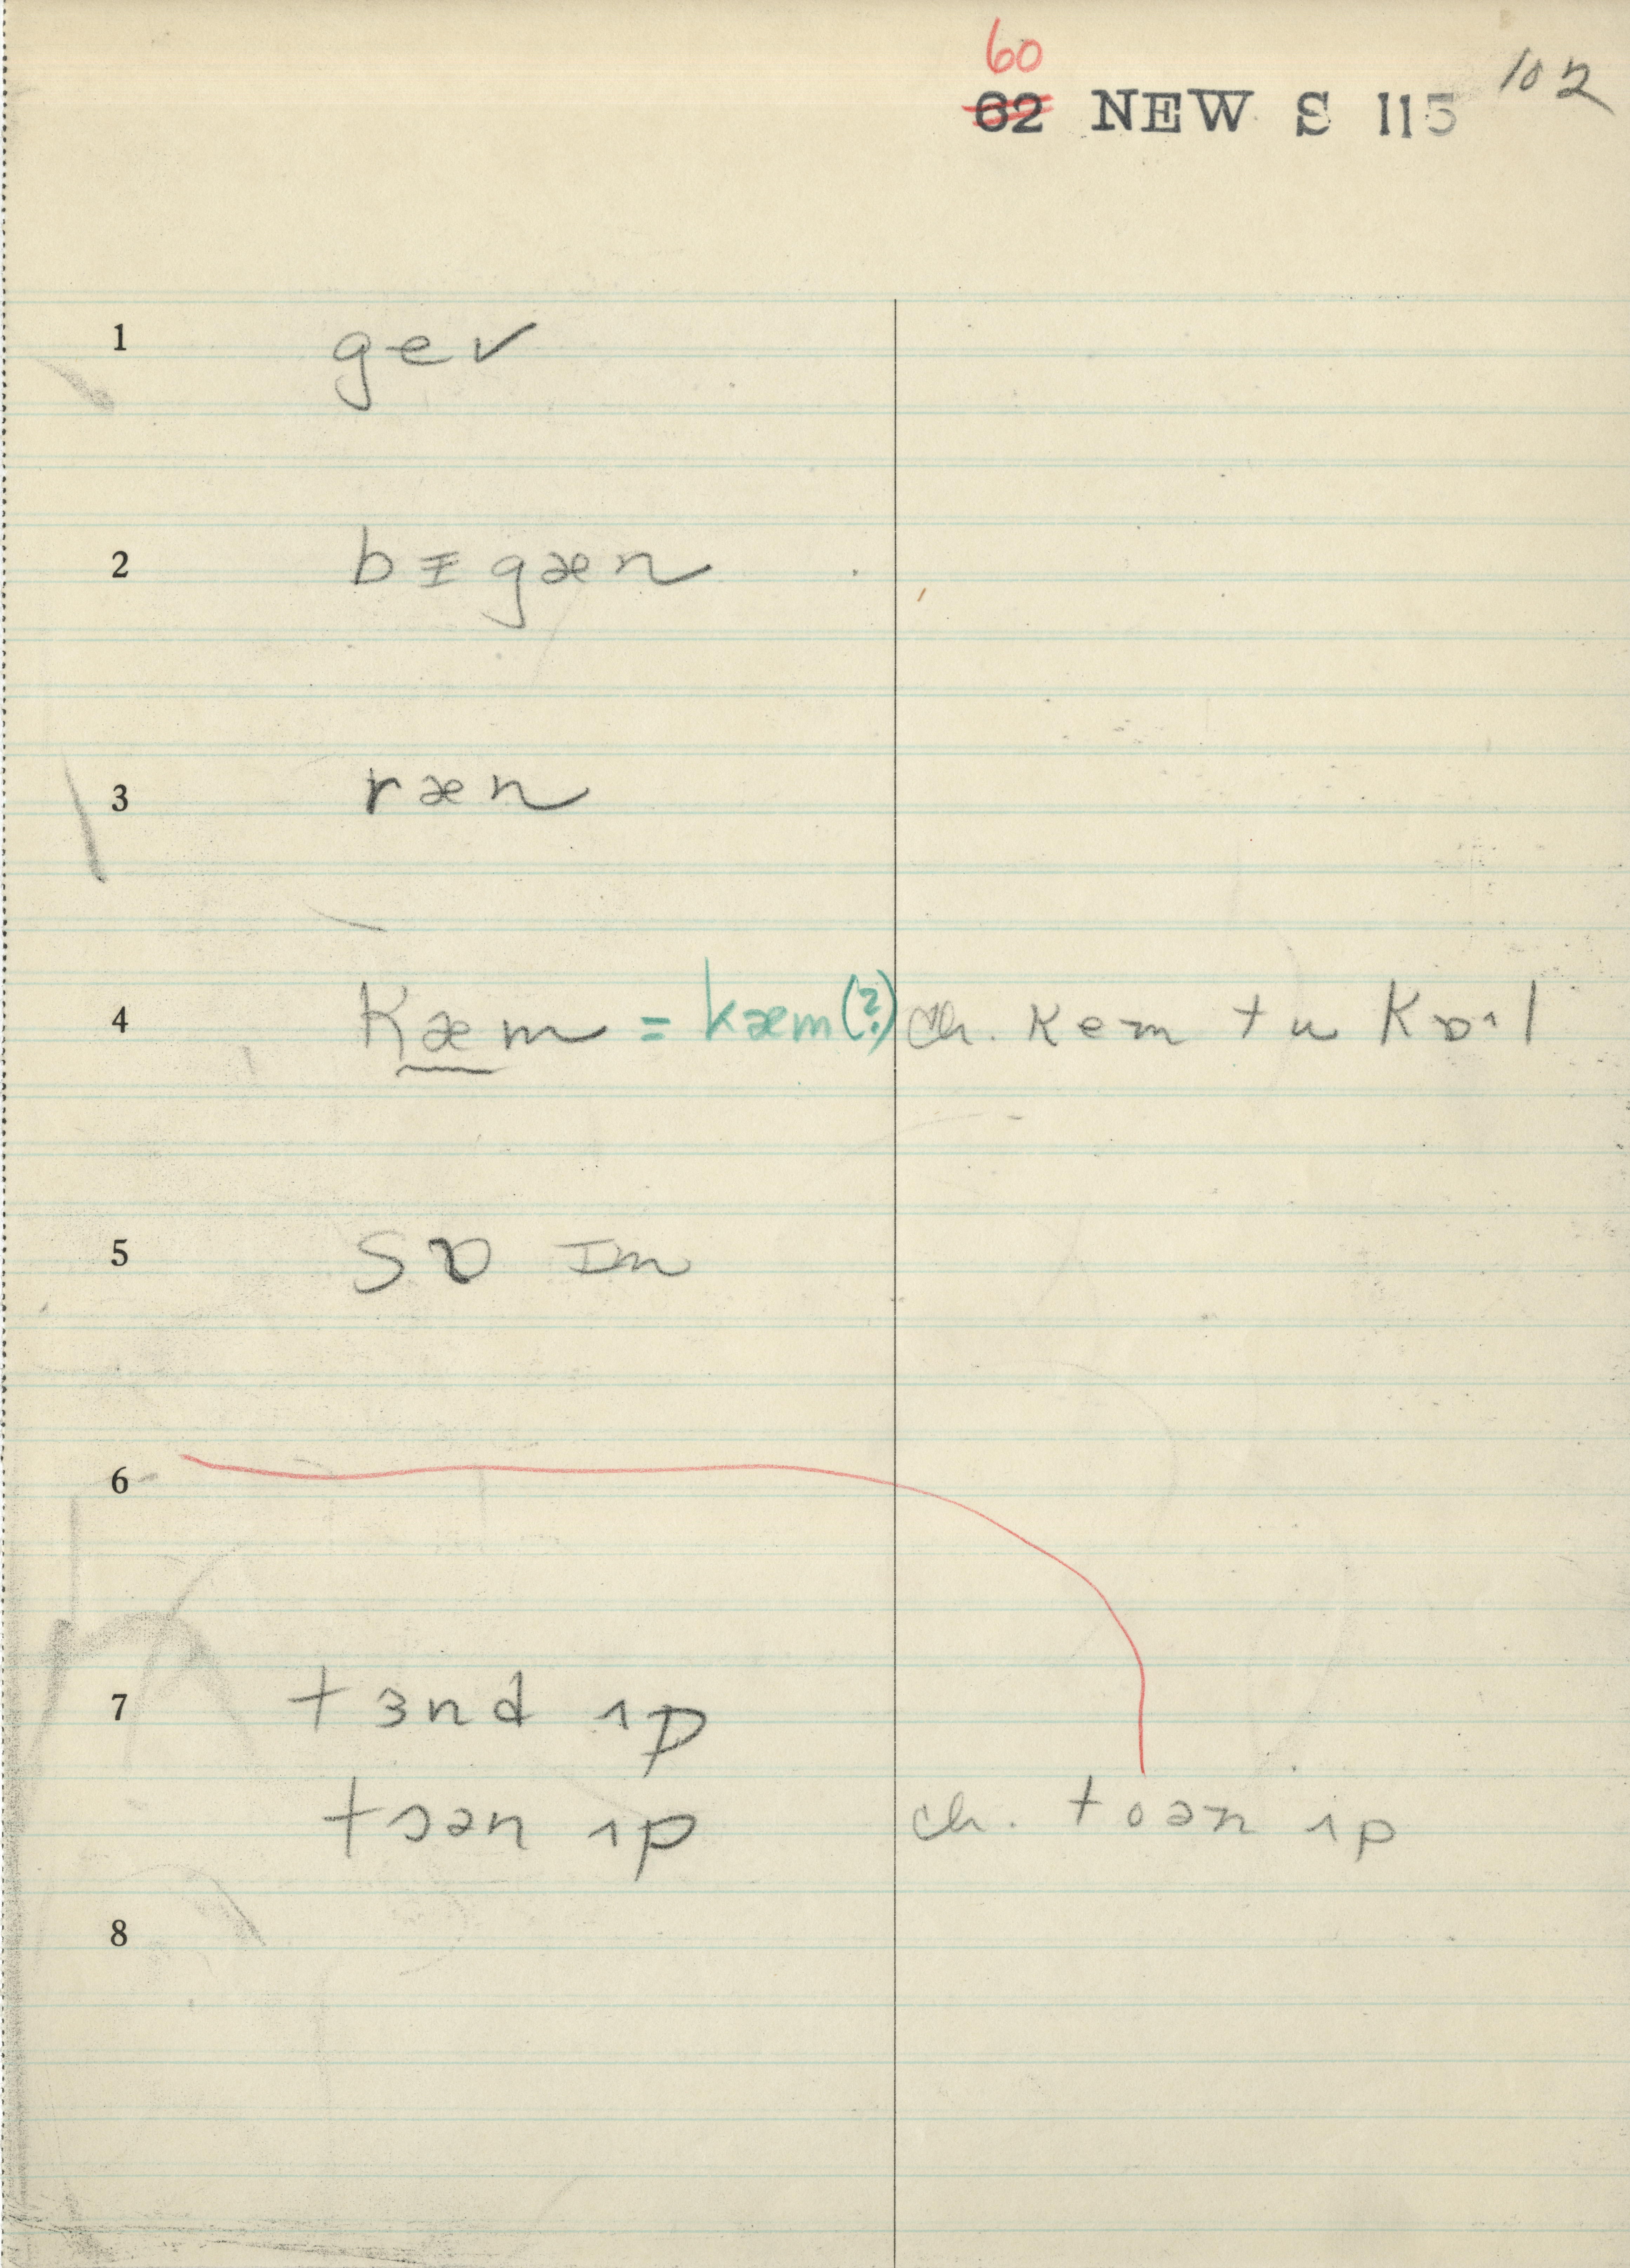 60
62 NEW S 115 102
1 gev
2 bᵻgæn
3 ræn
4 kæm = kæm(?) ch. kem tu kɒ·l
5 sɒ ɪm
6
7 tɜnd ʌp
tɔən ʌp ch. toən ʌp
8